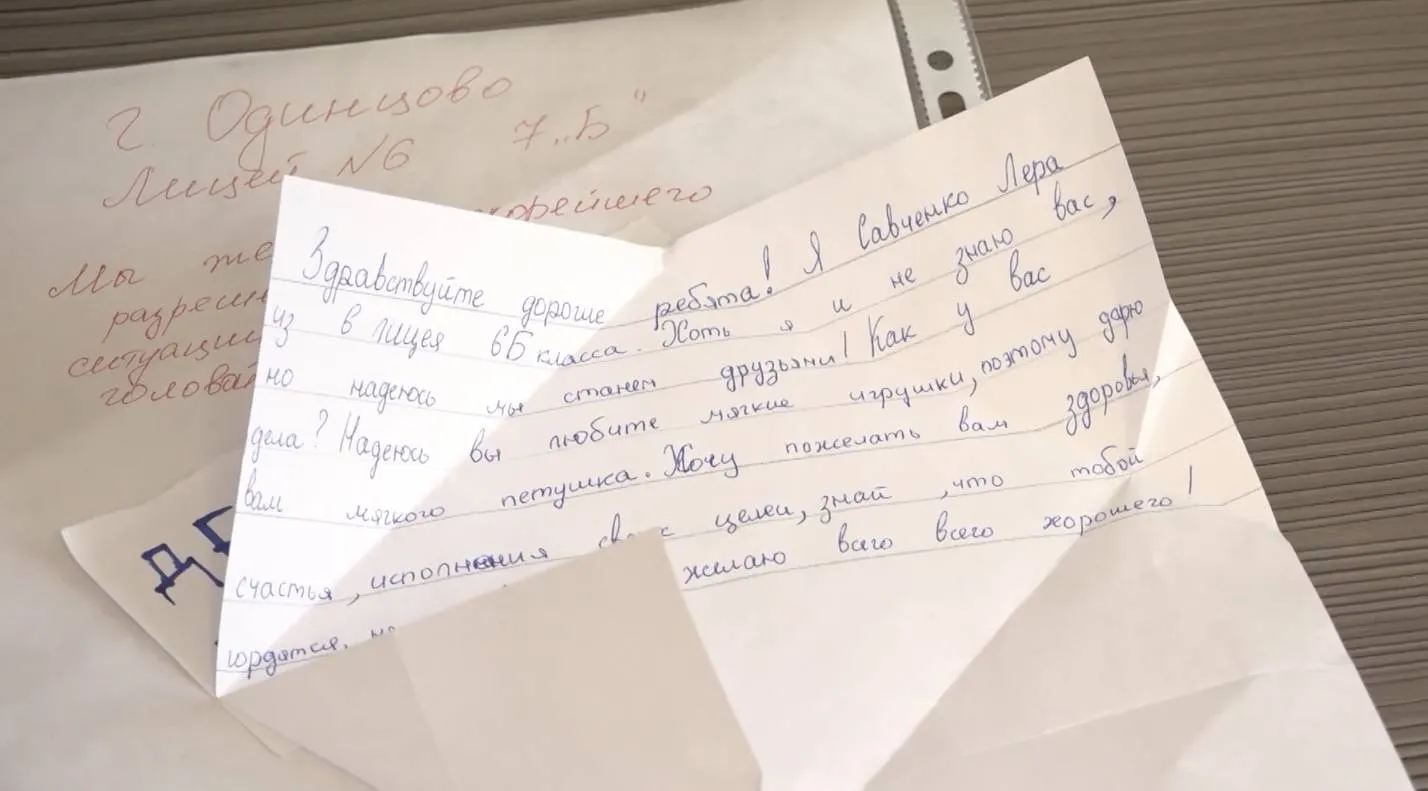 г. Одинцово
Лицей №6 7 „Б"
Мы
Здравствуйте дорогие ребята! Я Савченко Лера
из 6 лицея 6Б класса. Хоть я и не знаю вас,
но надеюсь мы станем друзьями! Как у вас
дела? Надеюсь вы любите мягкие игрушки, поэтому дарю
вам мягкого петушка. Хочу пожелать вам здоровья,
счастья, исполнения целей, знай ,что тобой
гордятся. желаю всего всего хорошего!